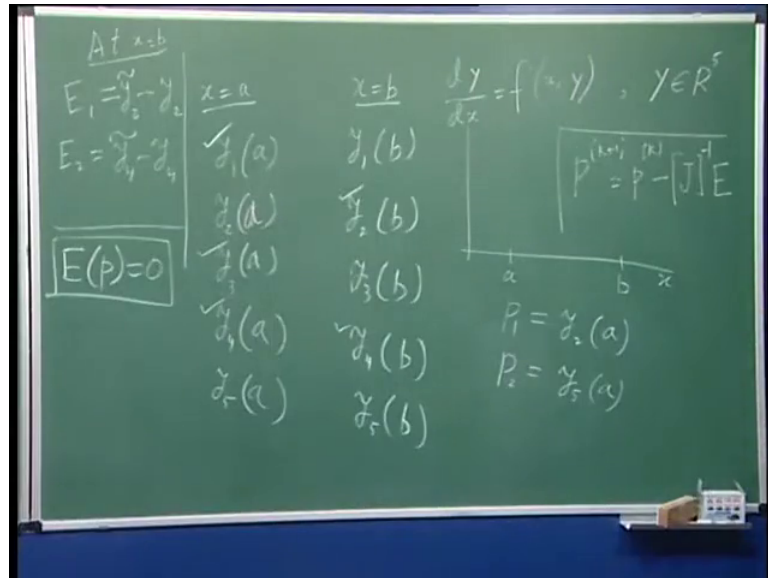 At x=b
E₁ = ỹ₂ - y₂
E₂ = ỹ₄ - y₄
E(p)=0
x=a
✓y₁(a)
y₂(a)
✓y₃(a)
✓y₄(a)
y₅(a)
x=b
y₁(b)
✓y₂(b)
y₃(b)
✓y₄(b)
y₅(b)
dy/dx = f(x, y) , y∈R⁵
p⁽ᵏ⁺¹⁾ = p⁽ᵏ⁾ - [J]⁻¹E
a b x
P₁ = y₂(a)
P₂ = y₅(a)